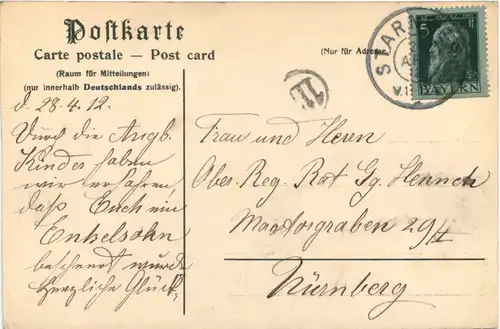 Postkarte
Carte postale — Post card
(Raum für Mitteilungen)
(nur innerhalb Deutschlands zulässig).
(Nur für Adresse)
STAR
5
BAYERN
II
d. 28.4.12.
Durch die Augb.
Kinder haben
wir erfahren,
daß Euch ein
Enkelsohn
beschert wurde
Herzliche Glück-
Frau und Herrn
Ober. Reg. Rat Gg. Hennch
Maxtorgraben 29/II
Nürnberg